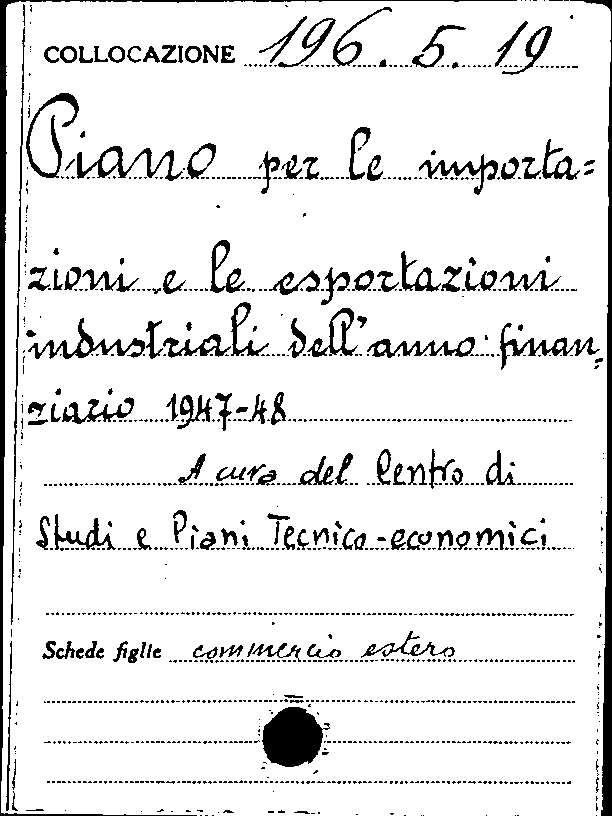 COLLOCAZIONE 196.5.19
Piano per le importa=
zioni e le esportazioni
industriali dell'anno finan=
ziario 1947-48
A cura del Centro di
Studi e Piani Tecnico-economici
Schede figlie commercio estero